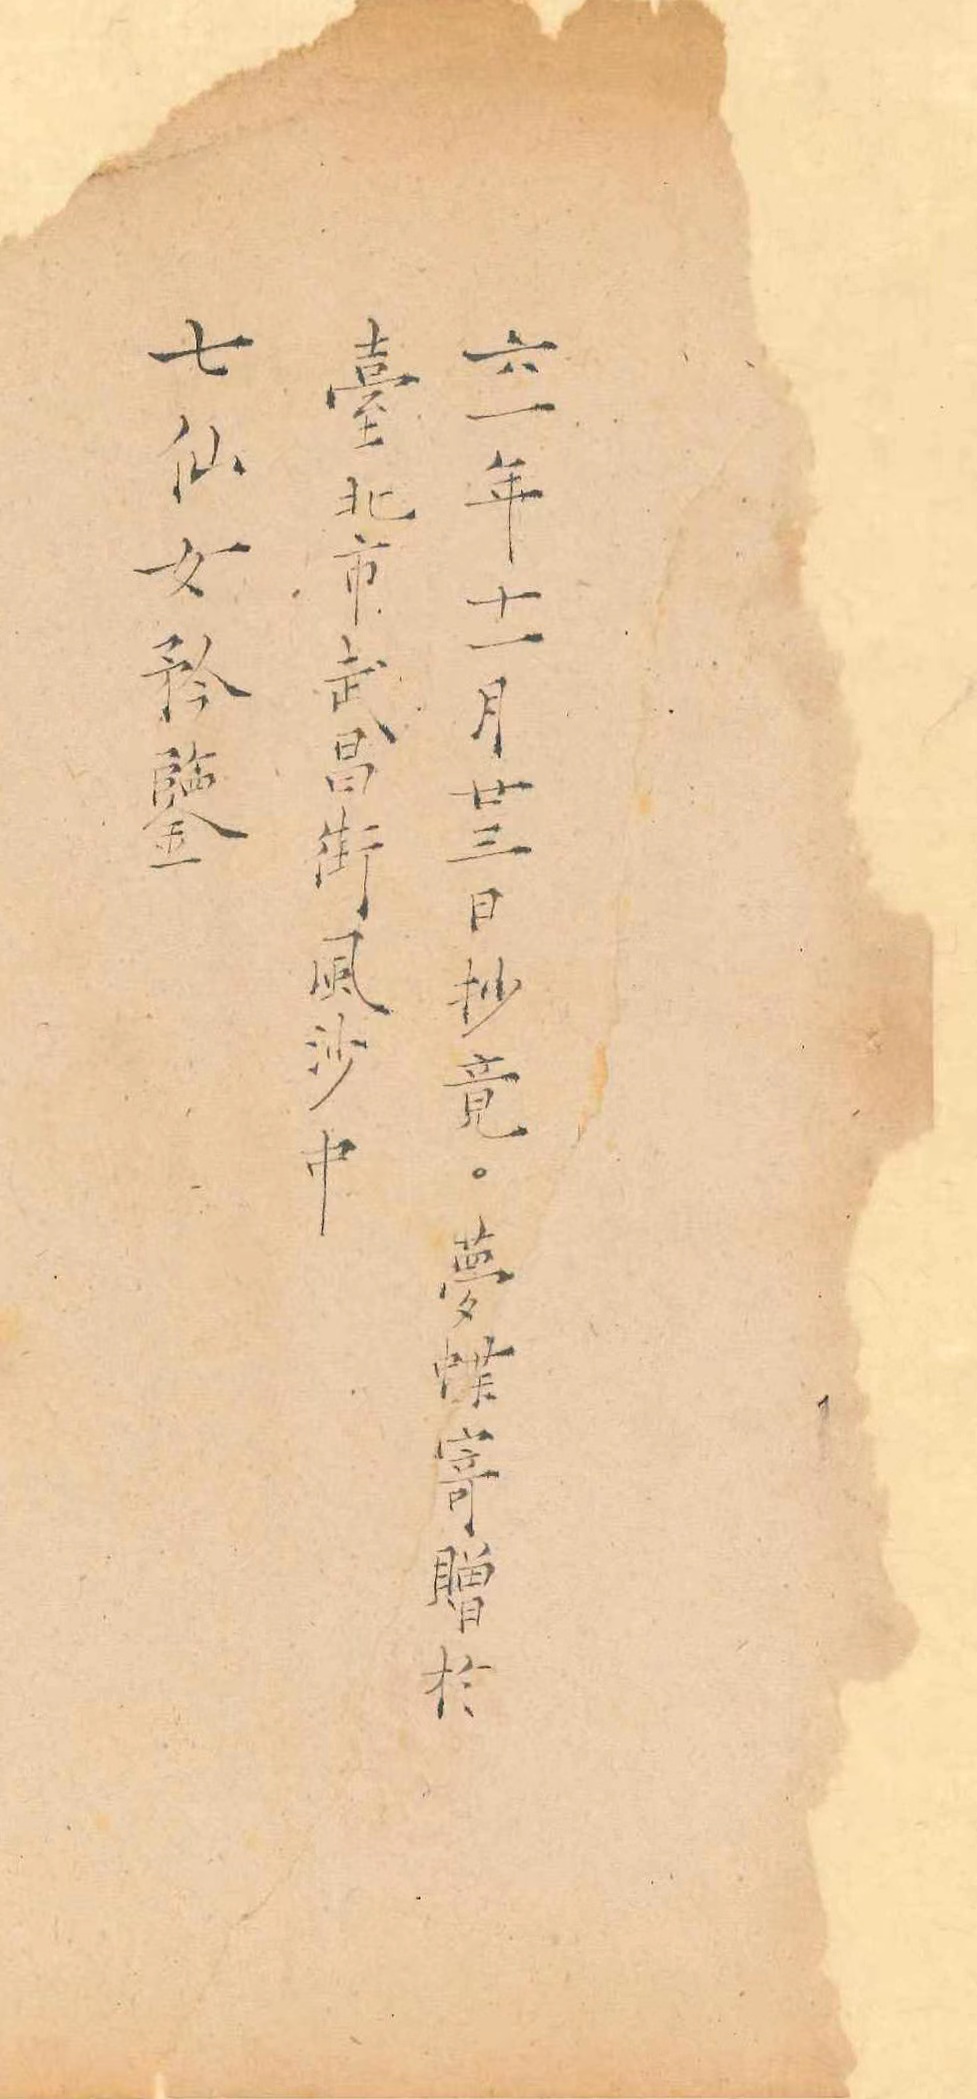 六一年十一月廿三日抄竟。夢蝶寄贈於
臺北市武昌街風沙中
七仙女矜鑒